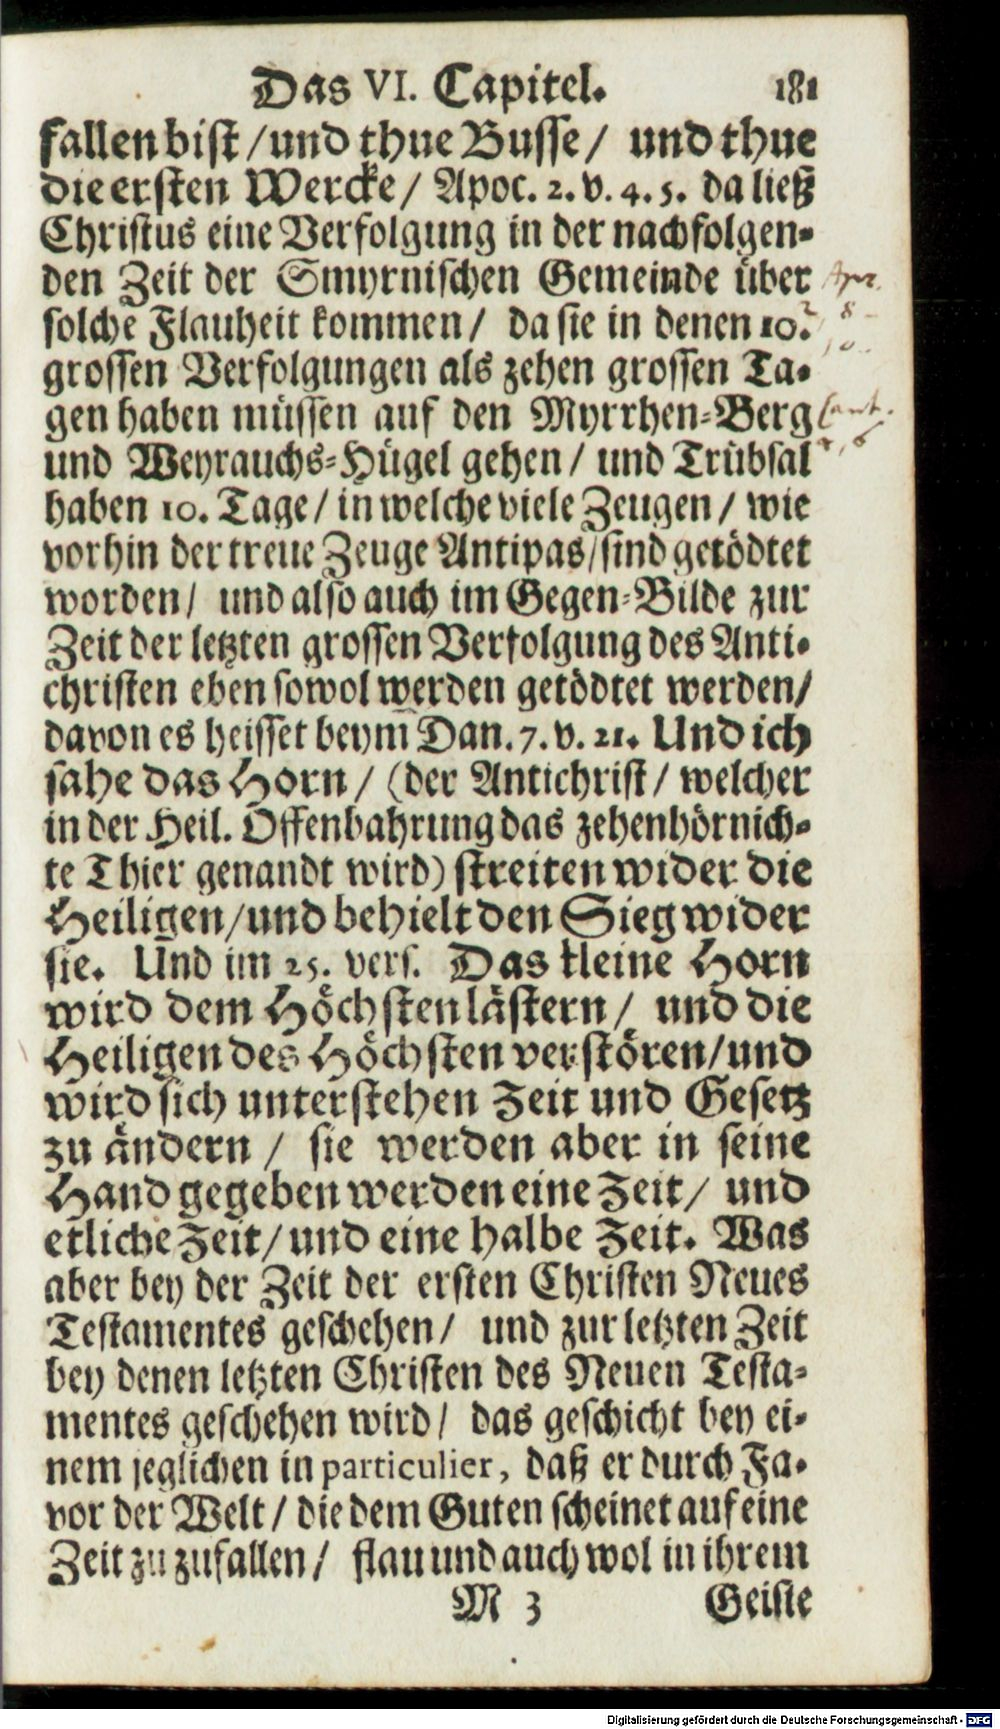 Das VI. Capitel. 181
fallen bist / und thue Busse / und thue
die ersten Wercke / Apoc. 2. v. 4. 5. da ließ
Christus eine Verfolgung in der nachfolgen-
den Zeit der Smyrnischen Gemeinde über
solche Flauheit kommen / da sie in denen 10.
grossen Verfolgungen als zehen grossen Ta-
gen haben müssen auf den Myrrhen-Berg
und Weyrauchs-Hügel gehen / und Trübsal
haben 10. Tage / in welche viele Zeugen / wie
vorhin der treue Zeuge Antipas / sind getödtet
worden / und also auch im Gegen-Bilde zur
Zeit der letzten grossen Verfolgung des Anti-
christen eben sowol werden getödtet werden /
davon es heisset beym̄ Dan. 7. v. 21. Und ich
sahe das Horn / (der Antichrist / welcher
in der Heil. Offenbahrung das zehenhörnich-
te Thier genandt wird) streiten wider die
Heiligen / und behielt den Sieg wider
sie. Und im 25. vers. Das kleine Horn
wird dem Höchsten lästern / und die
Heiligen des Höchsten verstören / und
wird sich unterstehen Zeit und Gesetz
zu ändern / sie werden aber in seine
Hand gegeben werden eine Zeit / und
etliche Zeit / und eine halbe Zeit. Was
aber bey der Zeit der ersten Christen Neues
Testamentes geschehen / und zur letzten Zeit
bey denen letzten Christen des Neuen Testa-
mentes geschehen wird / das geschicht bey ei-
nem jeglichen in particulier, daß er durch Fa-
vor der Welt / die dem Guten scheinet auf eine
Zeit zu zufallen / flau und auch wol in ihrem
M 3 Geiste
Digitalisierung gefördert durch die Deutsche Forschungsgemeinschaft - DFG